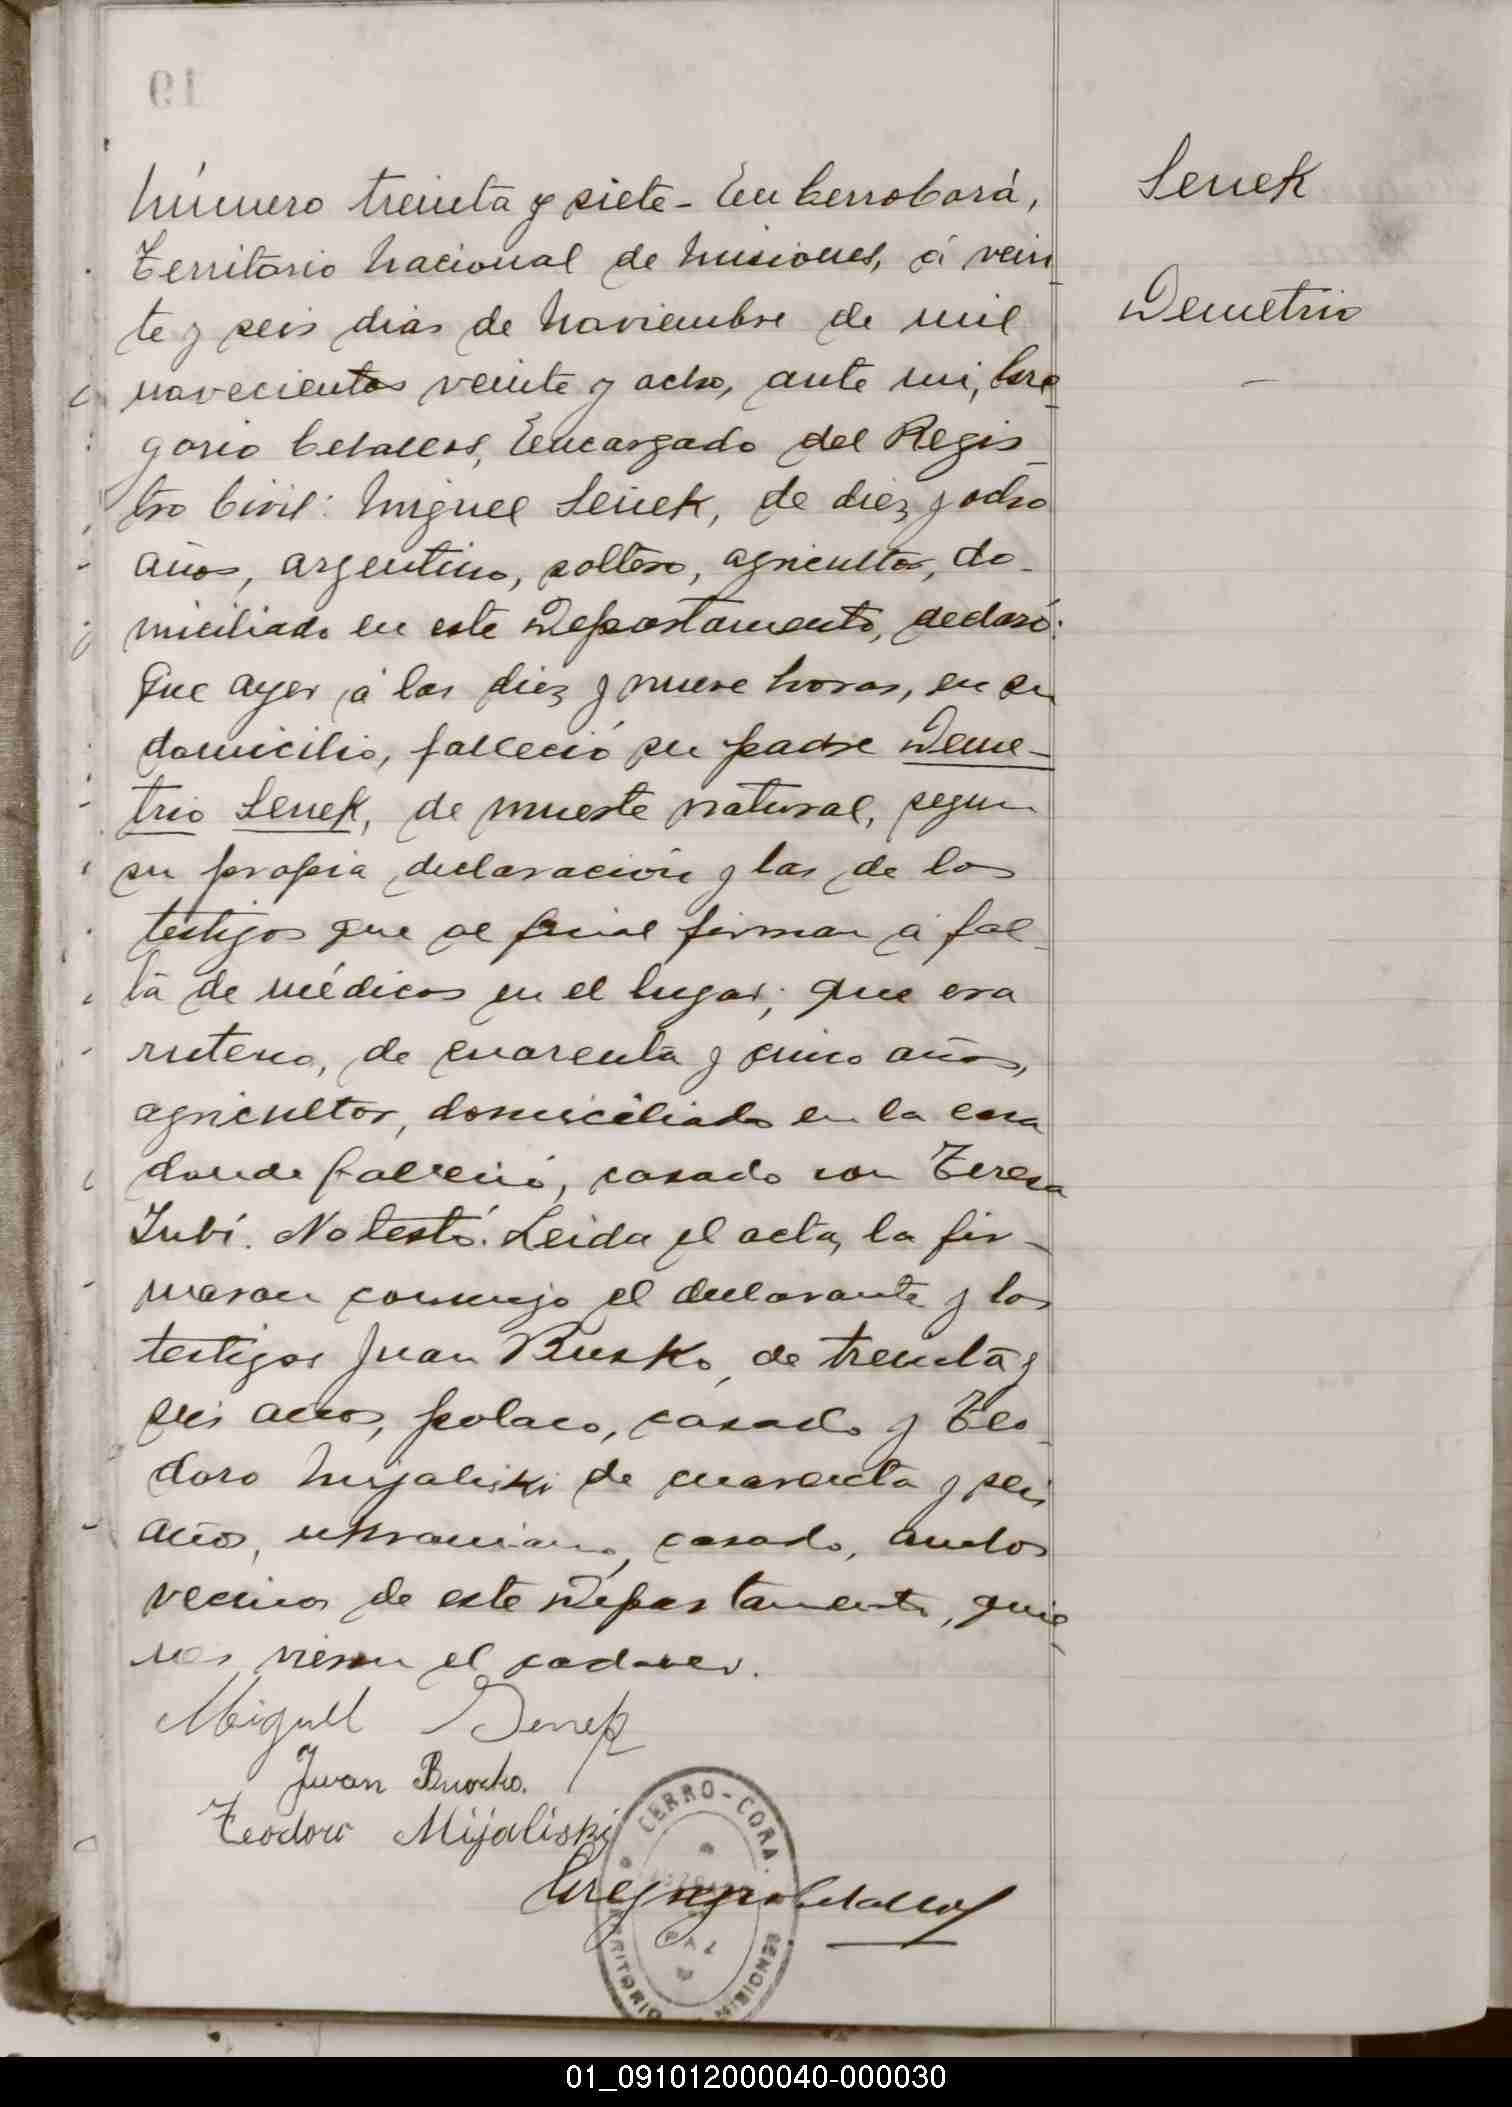 19
Número treinta y siete - En Cerro Corá,
Territorio Nacional de Misiones, á vein
te y seis dias de Noviembre de mil
novecientos veinte y ocho, ante mi, Gre-
gorio Ceballos, Encargado del Regis-
tro Civil: Miguel Senek, de diez y ocho
años, argentino, soltero, agricultor, do-
miciliado en este Departamento, declaró:
Que ayer á las diez y nueve horas, en su
domicilio, falleció su padre Deme-
trio Senek, de muerte natural, segun
su propia declaración y las de los
testigos que al final firman á fal-
ta de médicos en el lugar; que era
ruteno, de cuarenta y cinco años,
agricultor, domiciliado en la casa
donde falleció, casado con Teresa
Iubí. No testó. Leida el acta, la fir-
maron conmigo el declarante y los
testigos Juan Busko, de treinta y
seis años, polaco, casado y Teo-
doro Mijaliski de cuarenta y seis
años, ukraniano, casado, ambos
vecinos de este Departamento, quie-
nes vieron el cadaver.
Miguel Senek
Juan Buscko.
Teodoro Mijaliski
Gregorio Ceballos
CERRO-CORA.
TERRITORIO MISIONES
Senek
Demetrio
01_091012000040-000030